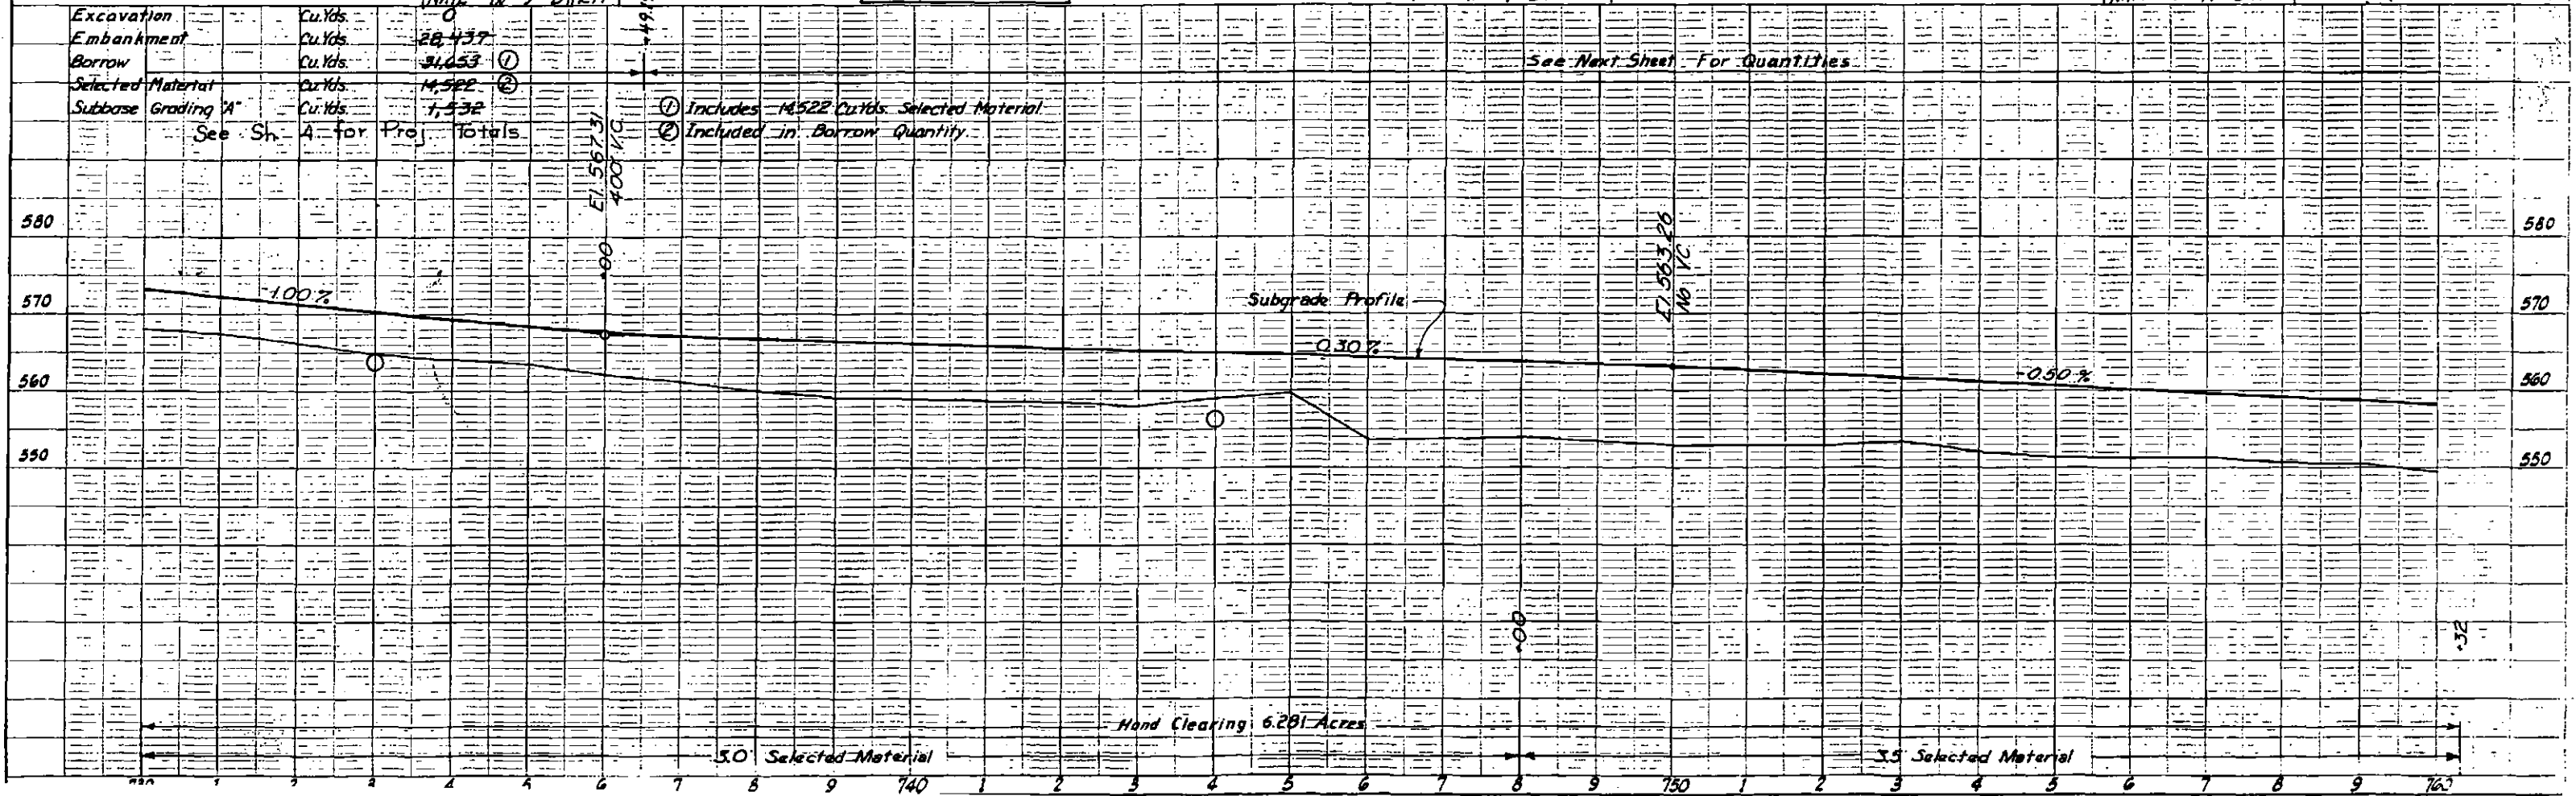 Excavation Cu.Yds. 0
Embankment Cu.Yds. 28,437
Borrow Cu.Yds. 31,653 ①
Selected Material Cu.Yds. 14,522 ②
Subbase Grading "A" Cu.Yds. 1,532
See Sh. A for Proj. Totals
① Includes 14,522 Cu.Yds. Selected Material
② Included in Borrow Quantity.
See Next Sheet For Quantities
+00 El. 567.31
400' V.C.
El. 563.26
No VC
580 580
570 570
560 560
550 550
-1.00%
Subgrade Profile
-0.30%
-0.50%
+00
+32
Hand Clearing 6.281 Acres
5.0' Selected Material
3.5' Selected Material
730 1 2 3 4 5 6 7 8 9 740 1 2 3 4 5 6 7 8 9 750 1 2 3 4 5 6 7 8 9 760